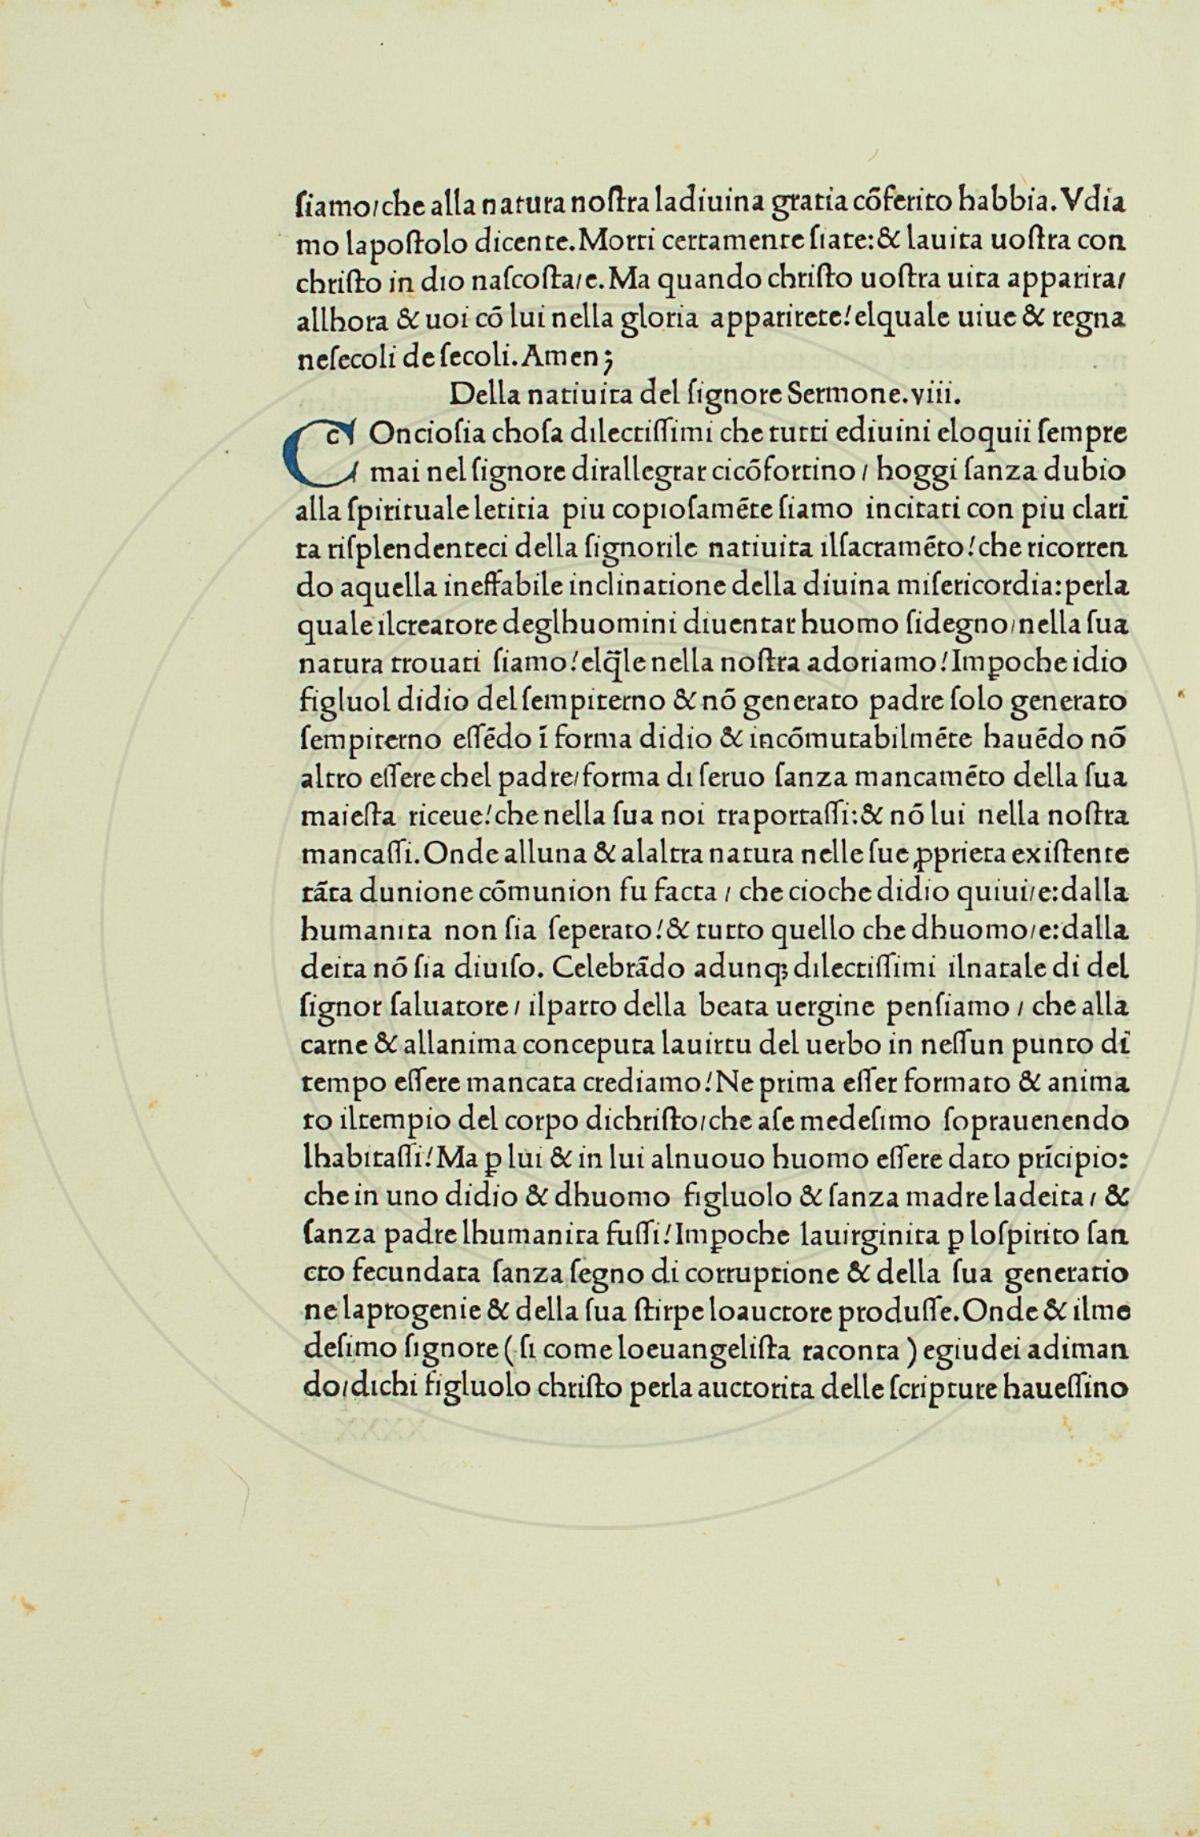 ſiamo/che alla natura noſtra ladiuina gratia cōferito habbia. Vdia
mo lapoſtolo dicente. Morti certamente ſiate:& lauita uoſtra con
chriſto in dio naſcoſta/e. Ma quando chriſto uoſtra uita apparira/
allhora & uoi cō lui nella gloria apparirete! elquale uiue & regna
neſecoli de ſecoli. Amen;
Della natiuita del ſignore Sermone. viii.
COncioſia choſa dilectiſſimi che tutti ediuini eloquii ſempre
mai nel ſignore dirallegrar cicōfortino / hoggi ſanza dubio
alla ſpirituale letitia piu copioſamēte ſiamo incitati con piu clari
ta riſplendenteci della ſignorile natiuita ilſacramēto! che ricorren
do aquella ineffabile inclinatione della diuina miſericordia: perla
quale ilcreatore deglhuomini diuentar huomo ſidegno/nella ſua
natura trouati ſiamo! elq̄le nella noſtra adoriamo! Imꝑoche idio
figluol didio del ſempiterno & nō generato padre ſolo generato
ſempiterno eſſēdo ī forma didio & incōmutabilmēte hauēdo nō
altro eſſere chel padre/forma di ſeruo ſanza mancamēto della ſua
maieſta riceue! che nella ſua noi traportaſſi:& nō lui nella noſtra
mancaſſi. Onde alluna & alaltra natura nelle ſue ꝓprieta exiſtente
tāta dunione cōmunion fu facta / che cioche didio quiui/e: dalla
humanita non ſia ſeperato! & tutto quello che dhuomo/e: dalla
deita nō ſia diuiſo. Celebrādo adunqꝫ dilectiſſimi ilnatale di del
ſignor ſaluatore / ilparto della beata uergine penſiamo / che alla
carne & allanima conceputa lauirtu del uerbo in neſſun punto di
tempo eſſere mancata crediamo! Ne prima eſſer formato & anima
to iltempio del corpo dichriſto/che aſe medeſimo ſoprauenendo
lhabitaſſi! Ma ꝑ lui & in lui alnuouo huomo eſſere dato prīcipio:
che in uno didio & dhuomo figluolo & ſanza madre ladeita / &
ſanza padre lhumanita fuſſi! Imꝑoche lauirginita ꝑ loſpirito ſan
cto fecundata ſanza ſegno di corruptione & della ſua generatio
ne laprogenie & della ſua ſtirpe loauctore produſſe. Onde & ilme
deſimo ſignore ( ſi come loeuangeliſta raconta ) egiudei adiman
do/dichi figluolo chriſto perla auctorita delle ſcripture haueſſino